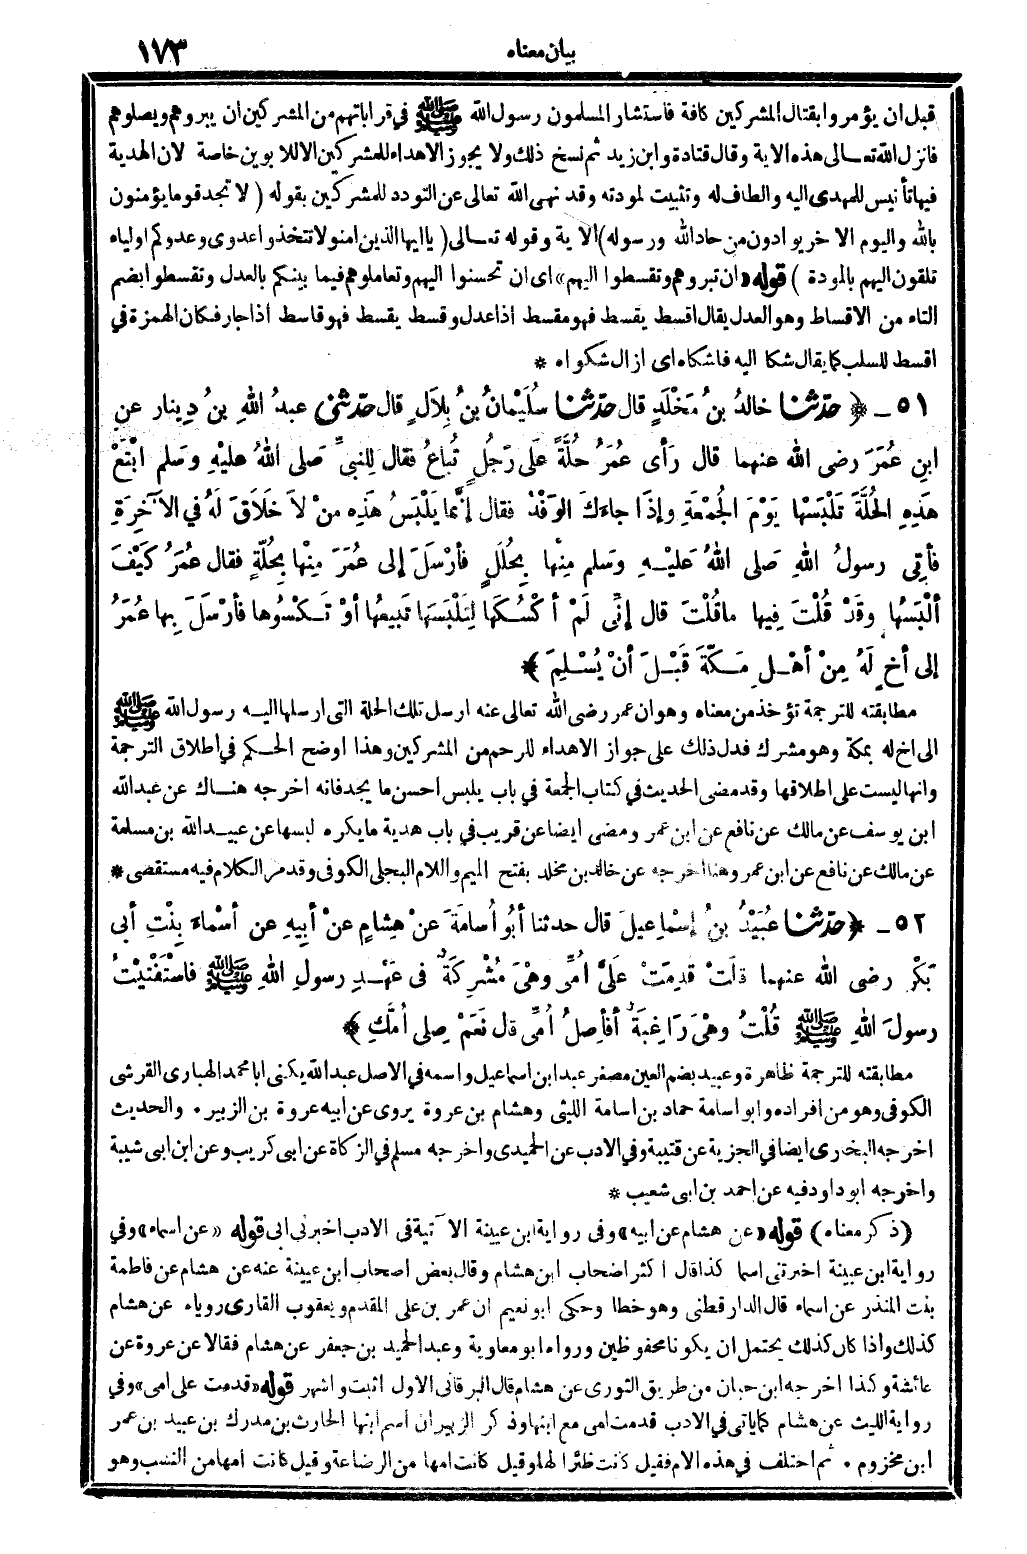 بيان معناه ١٧٣
قبل ان يؤمروا بقتال المشركين كافة فاستشار المسلمون رسول الله ﷺ في قراباتهم من المشركين ان يبروهم ويصلوهم
فانزل الله تعالى هذه الاية وقال قتادة وابن زيد ثم نسخ ذلك ولا يجوز الاهداء للمشركين الا للابوين خاصة لان الهدية
فيها تأنيس للمهدى اليه والطاف له وتثبيت لمودته وقد نهى الله تعالى عن التودد للمشركين بقوله ( لا تجد قوما يؤمنون
بالله واليوم الاخر يوادون من حاد الله ورسوله ) الاية وقوله تعالى ( يا ايها الذين امنوا لا تتخذوا عدوى وعدوكم اولياء
تلقون اليهم بالمودة ) قوله «ان تبروهم وتقسطوا اليهم» اى ان تحسنوا اليهم وتعاملوهم فيما بينكم بالعدل وتقسطوا بضم
التاء من الاقساط وهو العدل يقال اقسط يقسط فهو مقسط اذا عدل وقسط يقسط فهو قاسط اذا جار فكان الهمزة في
اقسط للسلب كما يقال شكا اليه فاشكاه اى ازال شكواه *
٥١ - ﴿ حَدَّثَنَا خالدُ بنُ مَخْلَدٍ قال حَدَّثَنَا سُلَيْمَانُ بنُ بِلَالٍ قال حَدَّثَنِي عبدُ اللهِ بنُ دِينار عنِ
ابنِ عُمَرَ رضى الله عنهما قال رَأى عُمَرُ حُلَّةً عَلَى رَجُلٍ تُباعُ فقال لِلنبيِّ صلى اللهُ عليْهِ وَسَلم ابْتَعْ
هَذِهِ الحُلَّةَ تَلْبَسْها يَوْمَ الجُمْعَةِ وإذَا جاءَكَ الوَفْدُ فقال إنَّمَا يَلْبَسُ هَذِه منْ لاَ خَلَاقَ لَهُ في الآخِرَةِ
فأُتِيَ رسولُ اللهِ صَلى اللهُ عَلَيْهِ وَسَلم مِنْها بِحُلَلٍ فأرْسَلَ إلى عُمَرَ مِنْها بِحُلَّةٍ فقال عُمَرُ كَيْفَ
ألْبَسُها وقَدْ قُلْتَ فِيها ماقُلْتَ قال إنِّى لَمْ أكْسُكَها لِتَلْبَسَها تَبيعُها أوْ تَكْسُوها فأرْسَلَ بِها عُمَرُ
إلى أخٍ لَهُ مِنْ أهْلِ مَكَّةَ قَبْلَ أنْ يُسْلِمَ ﴾
مطابقته للترجمة تؤخذ من معناه وهو ان عمر رضى الله تعالى عنه ارسل تلك الحلة التى ارسلها اليه رسول الله ﷺ
الى اخ له بمكة وهو مشرك فدل ذلك على جواز الاهداء للرحم من المشركين وهذا اوضح الحكم في اطلاق الترجمة
وانها ليست على اطلاقها وقد مضى الحديث في كتاب الجمعة في باب يلبس احسن ما يجد فانه اخرجه هناك عن عبد الله
ابن يوسف عن مالك عن نافع عن ابن عمر ومضى ايضا عن قريب في باب هدية ما يكره لبسها عن عبيد الله بن مسلمة
عن مالك عن نافع عن ابن عمر وهنا اخرجه عن خالد بن مخلد بفتح الميم واللام البجلى الكوفى وقد مر الكلام فيه مستقصى *
٥٢ - ﴿ حَدَّثَنَا عُبَيْدُ بنُ إسْماعيلَ قال حدثنا أبُو أُسامَةَ عنْ هِشامٍ عنْ أبِيهِ عن أسْماءَ بِنْتِ أبى
بَكْرٍ رضى الله عنهما قالَتْ قَدِمَتْ عَلَيَّ أُمِّى وهْىَ مُشْرِكَةٌ فى عَهْدِ رسولِ اللهِ ﷺ فاسْتَفْتَيْتُ
رسولَ اللهِ ﷺ قُلْتُ وهْىَ رَاغِبَةٌ أفأصِلُ أُمِّى قال نَعَمْ صِلى أُمَّكِ ﴾
مطابقته للترجمة ظاهرة وعبيد بضم العين مصغر عبد ابن اسماعيل واسمه في الاصل عبد الله يكنى ابا محمد الهبارى القرشى
الكوفى وهو من افراده وابو اسامة حماد بن اسامة الليثى وهشام بن عروة يروى عن ابيه عروة بن الزبير . والحديث
اخرجه البخارى ايضا في الجزية عن قتيبة وفي الادب عن الحميدى واخرجه مسلم في الزكاة عن ابى كريب وعن ابن ابى شيبة
واخرجه ابو داود فيه عن احمد بن ابى شعيب *
(ذكر معناه) قوله «عن هشام عن ابيه» وفى رواية ابن عيينة الآتية فى الادب اخبرنى ابى قوله «عن اسماء» وفي
رواية ابن عيينة اخبرتنى اسما كذا قال اكثر اصحاب ابن هشام وقال بعض اصحاب ابن عيينة عنه عن هشام عن فاطمة
بنت المنذر عن اسماء قال الدار قطنى وهو خطا وحكى ابو نعيم ان عمر بن على المقدم ويعقوب القارى روياه عن هشام
كذلك واذا كان كذلك يحتمل ان يكونا محفوظين ورواه ابو معاوية وعبد الحميد بن جعفر عن هشام فقالا عن عروة عن
عائشة وكذا اخرجه ابن حبان من طريق الثورى عن هشام قال البرقانى الاول اثبت واشهر قوله «قدمت على امى» وفي
رواية الليث عن هشام كما ياتى في الادب قدمت امى مع ابنها وذكر الزبير ان اسم ابنها الحارث بن مدرك بن عبيد بن عمر
ابن مخزوم . ثم اختلف في هذه الام فقيل كانت ظئرا لها وقيل كانت امها من الرضاعة وقيل كانت امها من النسب وهو